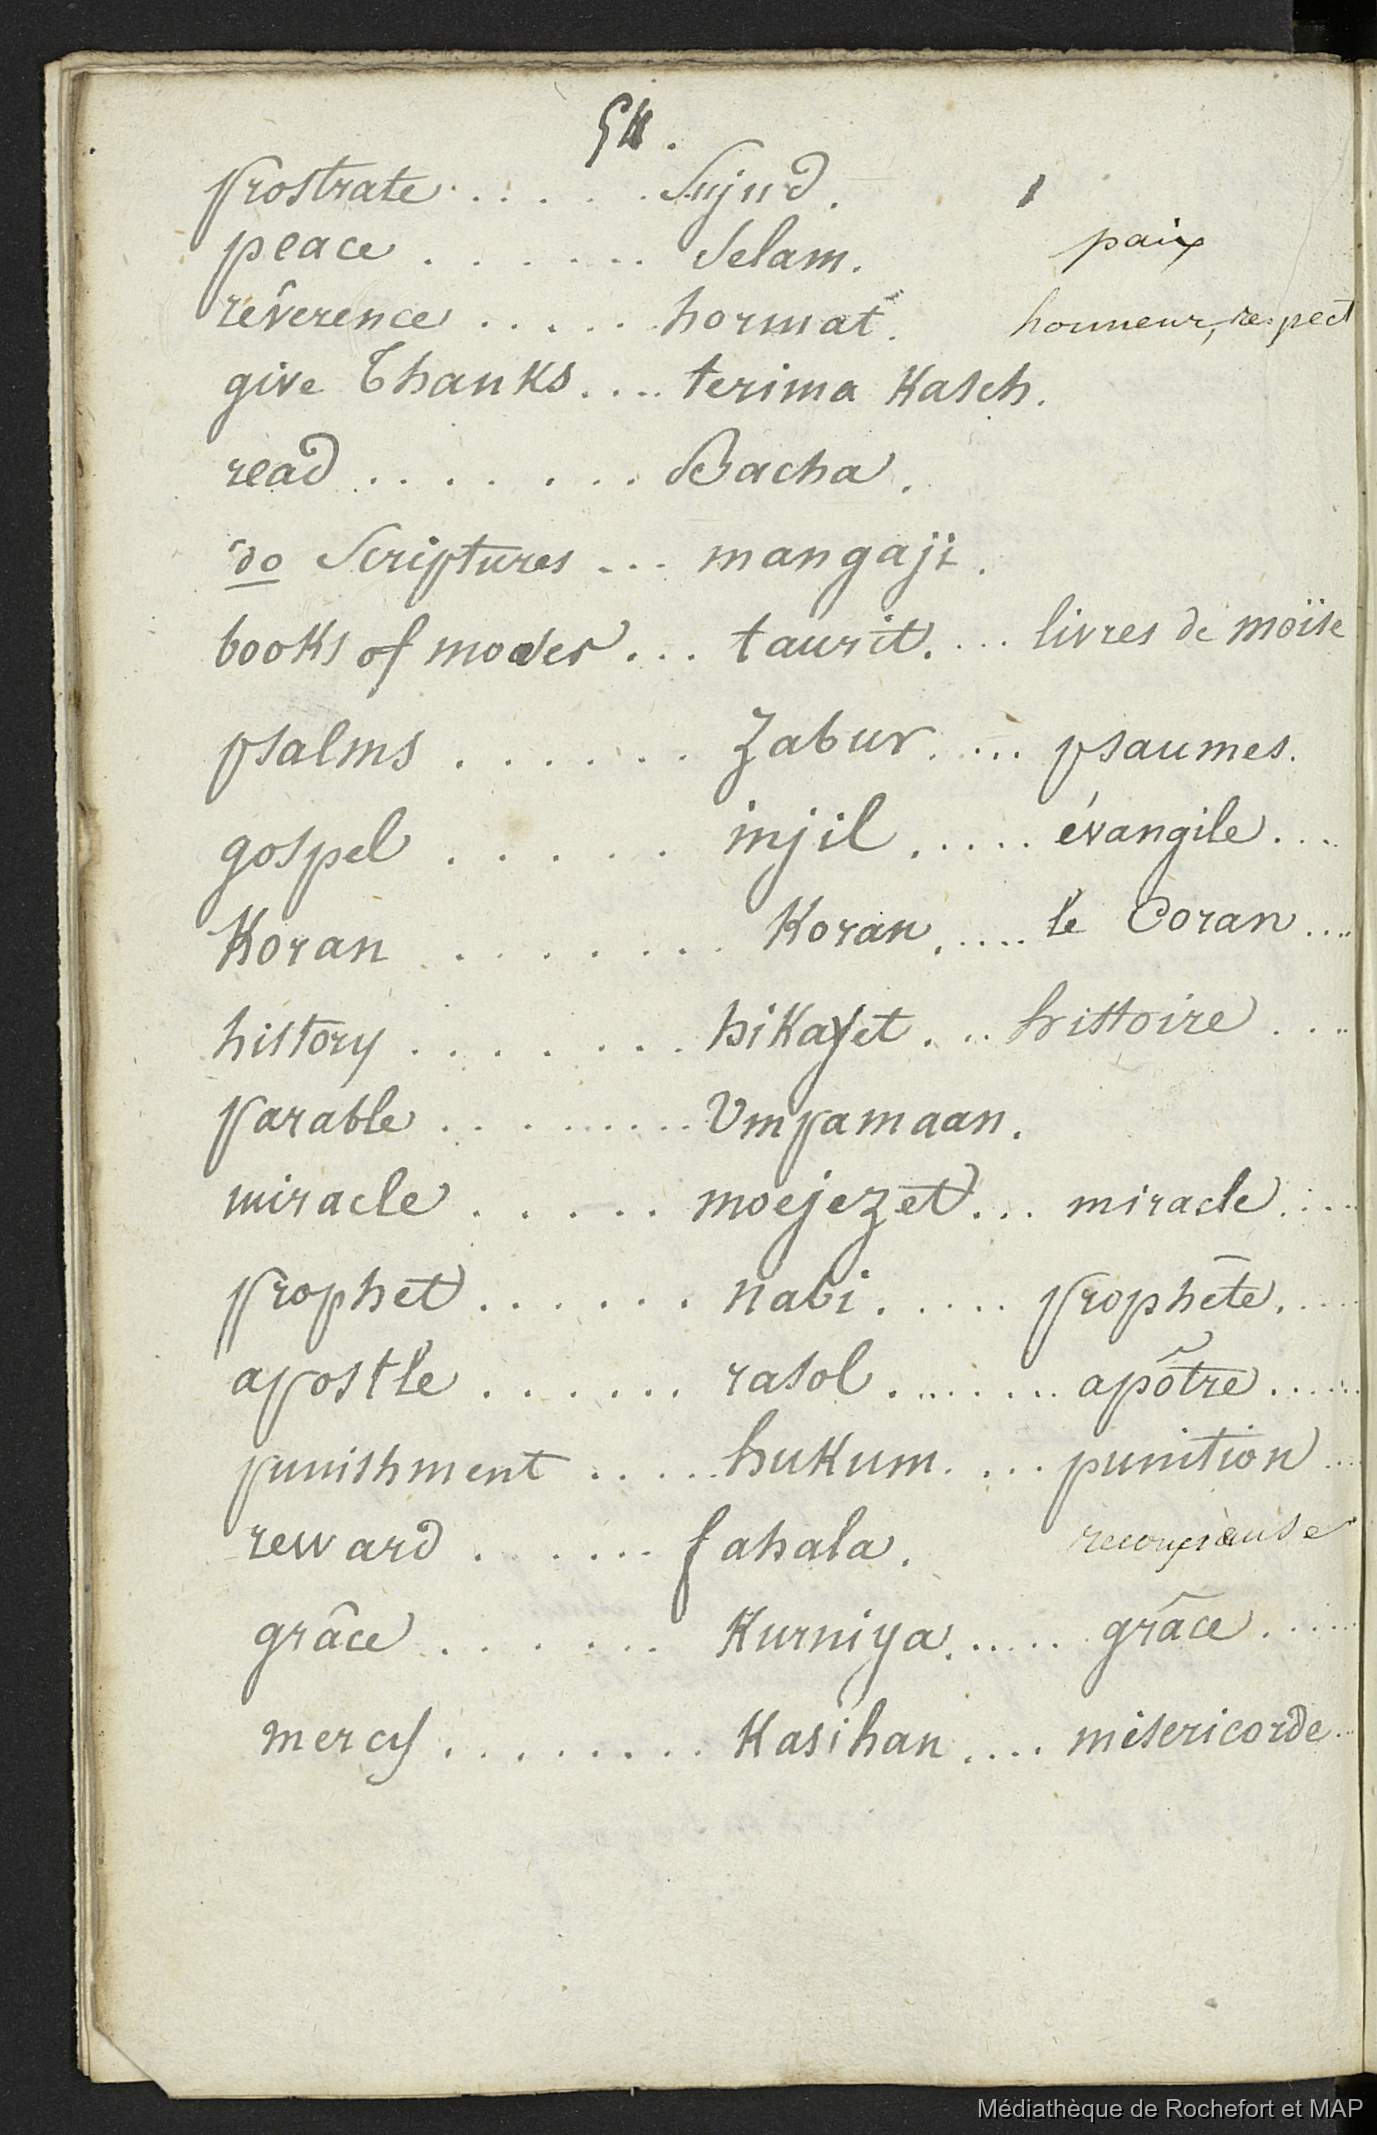 54.
prostrate . . . . . Sujud.
peace . . . . . . Selam. paix
réverence . . . . . hormat. honneur, respect
give Thanks. . . . terima Kasch.
read . . . . . . . Bacha.
do Scriptures . . . mangaji.
books of moses . . . taurit. . . . livres de moïse
psalms . . . . . . Zabur. . . . psaumes.
gospel . . . . . injil . . . . . évangile . . .
Koran . . . . . . . Koran. . . . . le Coran . . .
history . . . . . . . hikayet . . . histtoire . . .
parable . . . . . . . . . Umpamaan.
miracle . . . . . moejezet . . . miracle . . . .
prophet . . . . . . nabi . . . . . prophête. . . .
apostle . . . . . . rasol . . . . . . . apôtre . . . . .
punishment . . . . . hukum. . . . punition . . .
reward . . . . . . fahala. recompense
grâce . . . . . . . Kurniya. . . . . grâce . . . . .
mercy . . . . . . . . Kasihan . . . . misericorde . .
Médiathèque de Rochefort et MAP